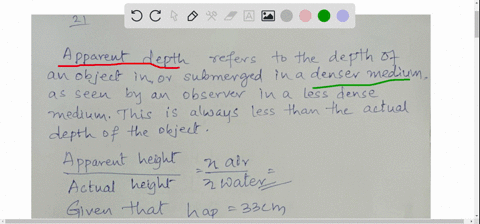 21
Apparent depth refers to the depth of
an object in, or submerged in a denser medium,
as seen by an observer in a less dense
medium. This is always less than the actual
depth of the object.
Apparent height / Actual height = n air / n water =
Given that hap = 33cm